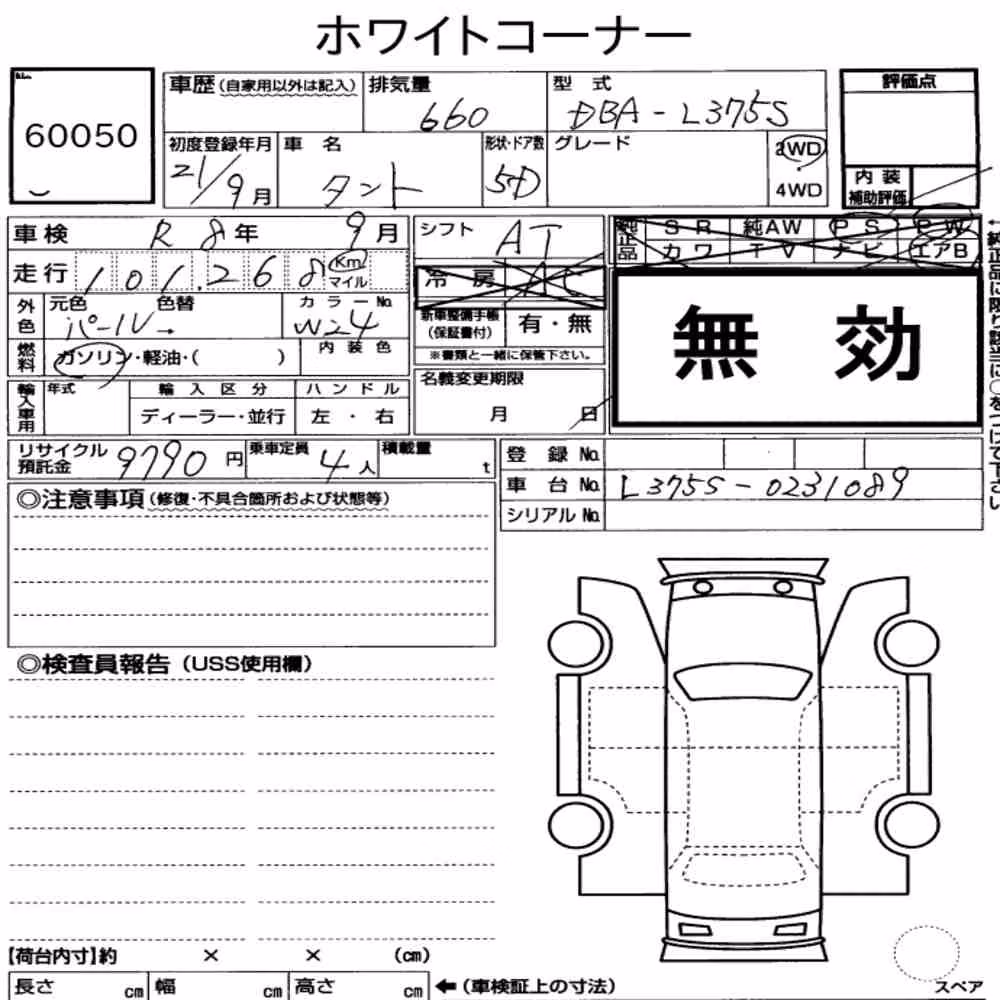 ホワイトコーナー
60050
車歴 (自家用以外は記入) 排気量 型式 評価点
660 DBA-L375S
初度登録年月 車名 形状・ドア数 グレード 2WD
21/9月 タント 5D 4WD
内装
補助評価
車検 R8年 9月 シフト AT 純正品 SR 純AW PS PW
カワ TV ナビ エアB
走行 101,268 Km マイル 冷房 AC
外色 元色 色替 カラーNo.
パール W24
新車整備手帳
(保証書付) 有・無
※書類と一緒に保管下さい。
無効
燃料 ガソリン・軽油・( ) 内装色
輸入車用 年式 輸入区分 ハンドル
ディーラー・並行 左・右
名義変更期限
月 日
←純正品に限り該当に○をつけて下さい
リサイクル
預託金 9790円 乗車定員 4人 積載量 t
登録No.
車台No. L375S-0231089
シリアルNo.
◎注意事項 (修復・不具合箇所および状態等)
◎検査員報告 (USS使用欄)
【荷台内寸】約 × × (cm)
長さ cm 幅 cm 高さ cm ←(車検証上の寸法)
スペア